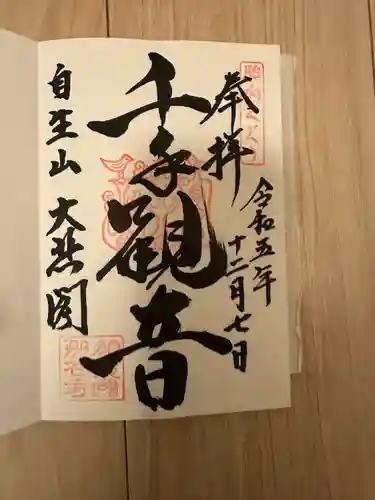 奉拝
令和五年
十二月七日
千手觀音
自生山 大悲閣